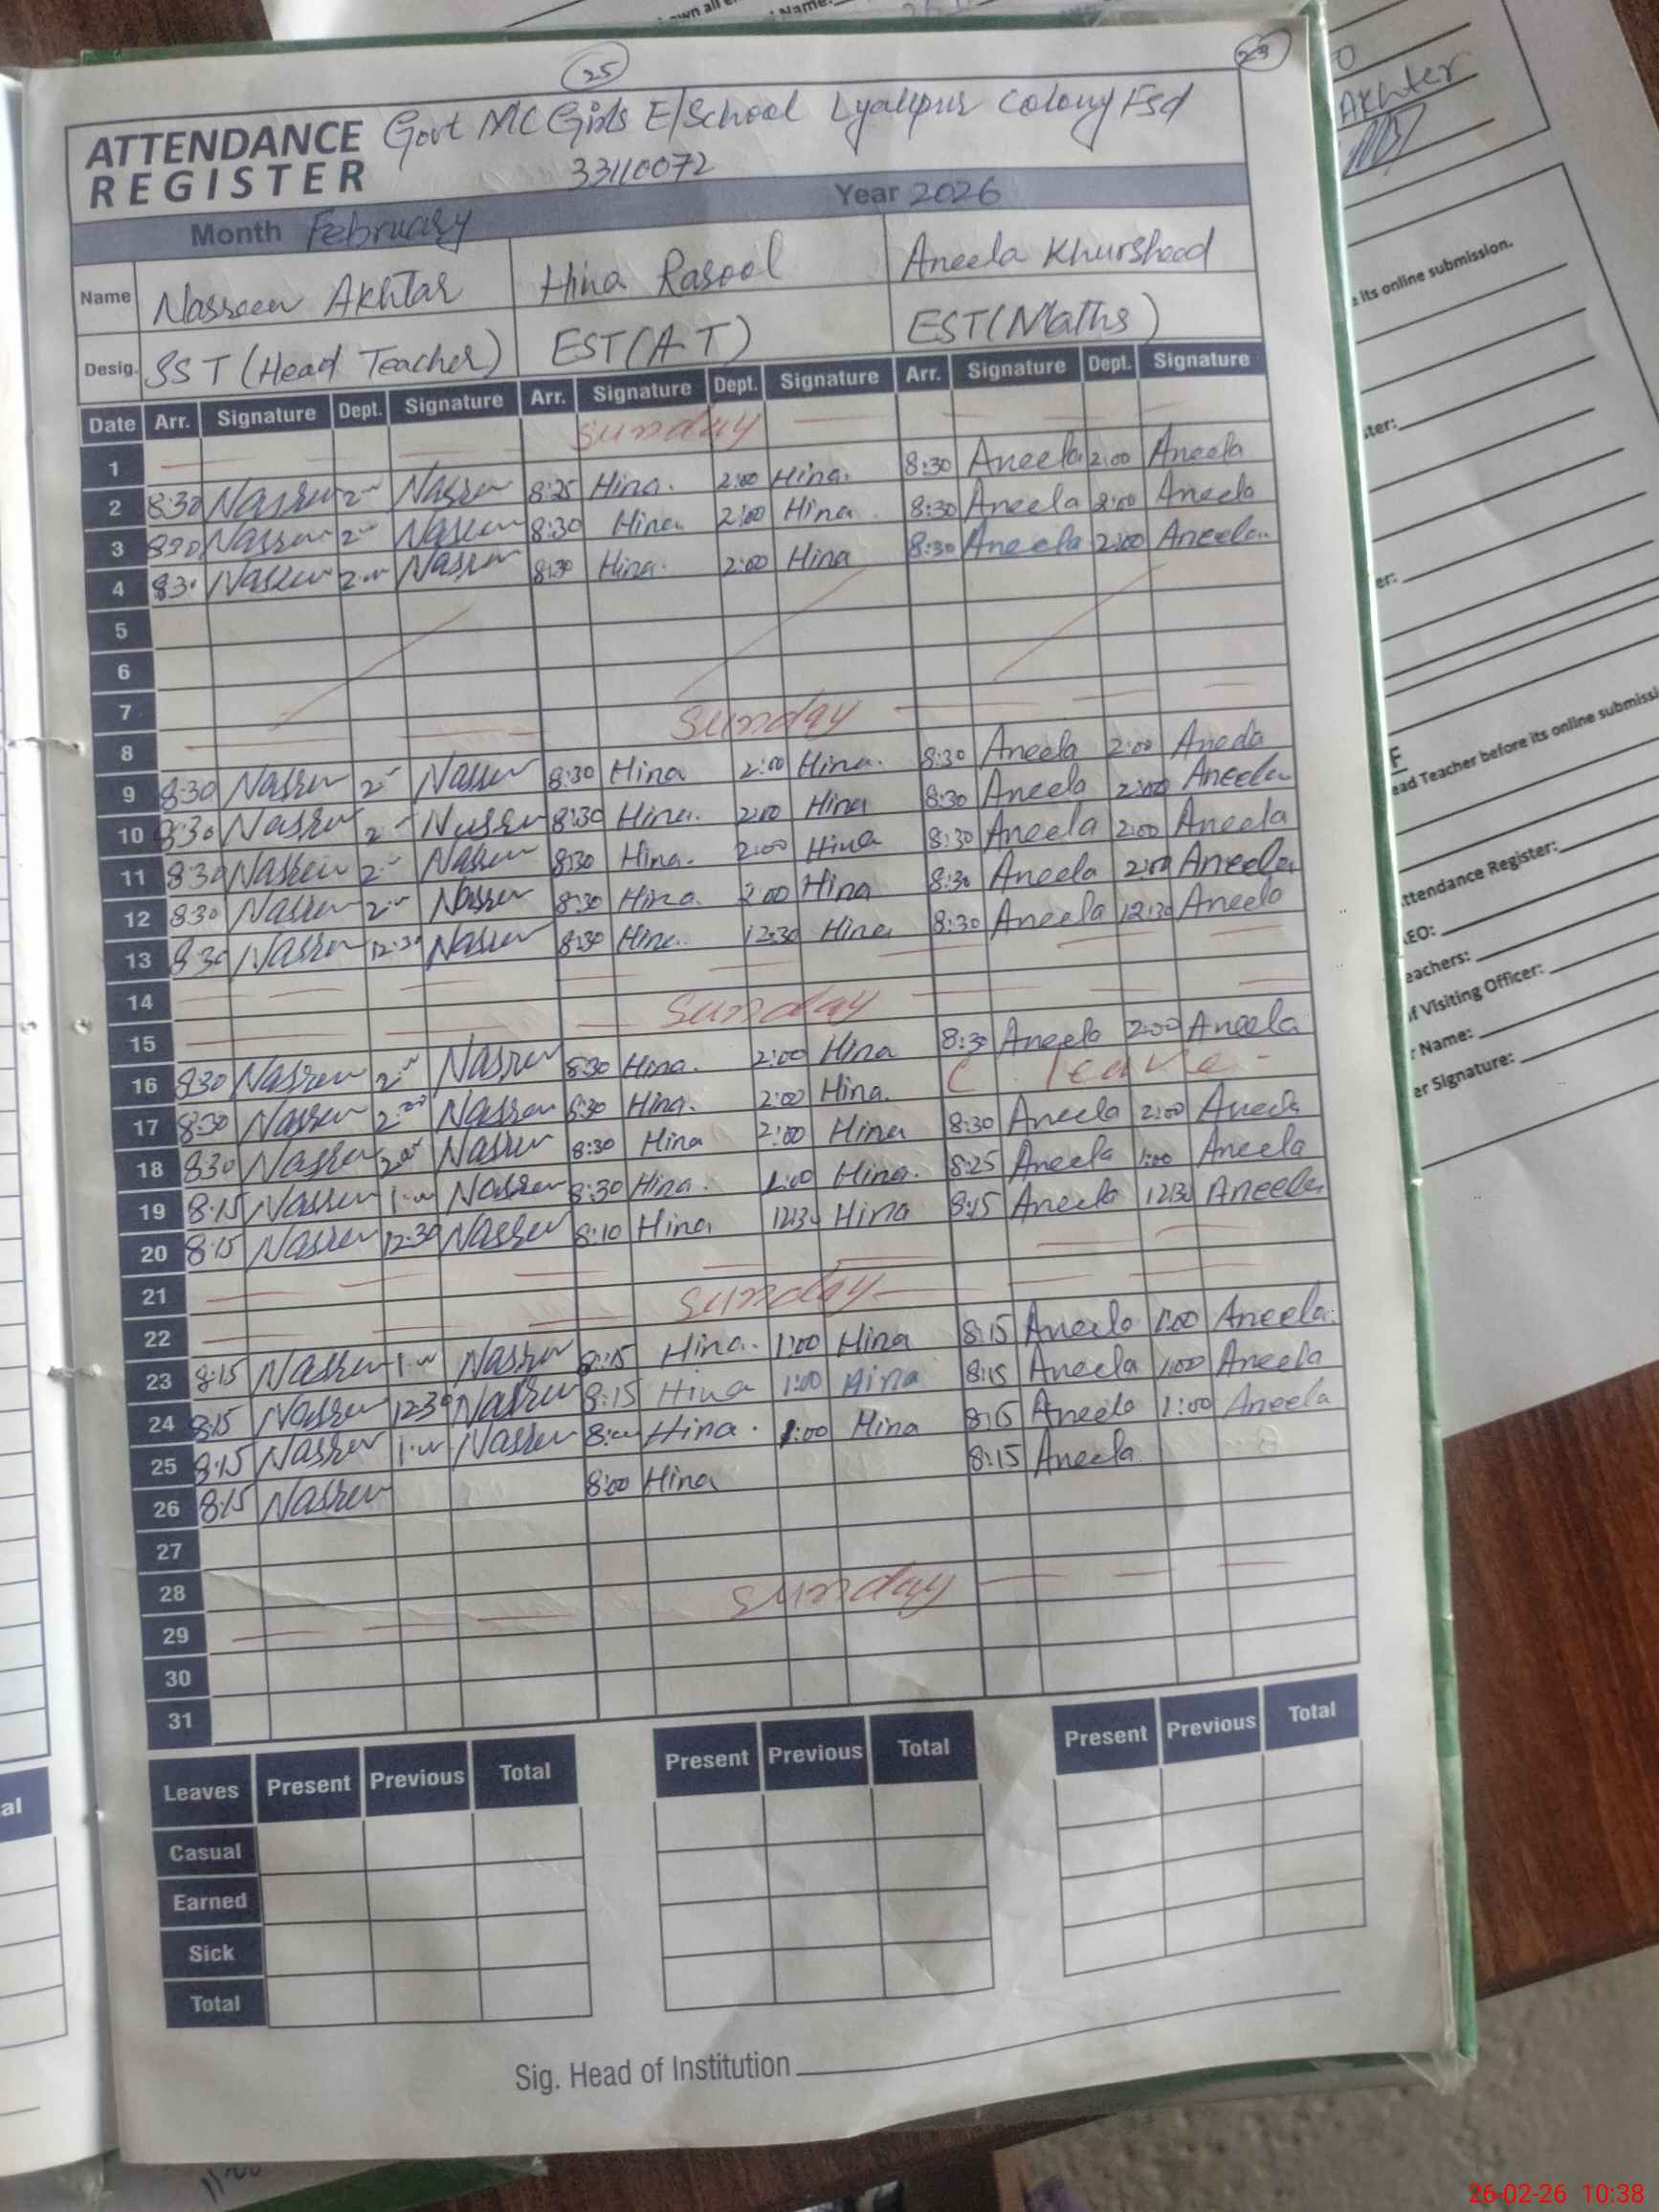 25
23
ATTENDANCE REGISTER
Govt MC Girls E/School Lyallpur Colony Fsd
33110072
Month February Year 2026
Name Nasreen Akhtar Hina Rasool Aneela Khursheed
Desig. SST (Head Teacher) EST(A.T) EST(Maths)
Date Arr. Signature Dept. Signature Arr. Signature Dept. Signature Arr. Signature Dept. Signature
1 Sunday
2 8:30 Nasreen 2 Nasreen 8:25 Hina. 2:00 Hina. 8:30 Aneela 2:00 Aneela
3 8:30 Nasreen 2 Nasreen 8:30 Hina 2:00 Hina 8:30 Aneela 2:00 Aneela
4 8:30 Nasreen 2:00 Nasreen 8:30 Hina. 2:00 Hina 8:30 Aneela 2:00 Aneela
5
6
7
8 Sunday
9 8:30 Nasreen 2 Nasreen 8:30 Hina 2:00 Hina. 8:30 Aneela 2:00 Aneela
10 8:30 Nasreen 2 Nasreen 8:30 Hina. 2:00 Hina 8:30 Aneela 2:00 Aneela
11 8:30 Nasreen 2 Nasreen 8:30 Hina. 2:00 Hina 8:30 Aneela 2:00 Aneela
12 8:30 Nasreen 2 Nasreen 8:30 Hina. 2:00 Hina 8:30 Aneela 2:00 Aneela
13 8:30 Nasreen 12:30 Nasreen 8:30 Hina. 12:30 Hina 8:30 Aneela 12:30 Aneela
14
15 Sunday
16 8:30 Nasreen 2 Nasreen 8:30 Hina. 2:00 Hina 8:30 Aneela 2:00 Aneela
17 8:30 Nasreen 2:00 Nasreen 8:30 Hina. 2:00 Hina. C. leave
18 8:30 Nasreen 2:00 Nasreen 8:30 Hina 2:00 Hina 8:30 Aneela 2:00 Aneela
19 8:15 Nasreen 1:00 Nasreen 8:30 Hina. 1:00 Hina. 8:25 Aneela 1:00 Aneela
20 8:15 Nasreen 12:30 Nasreen 8:10 Hina 12:30 Hina 8:15 Aneela 12:30 Aneela
21
22 Sunday
23 8:15 Nasreen 1:00 Nasreen 8:15 Hina. 1:00 Hina 8:15 Aneela 1:00 Aneela.
24 8:15 Nasreen 12:30 Nasreen 8:15 Hina 1:00 Hina 8:15 Aneela 1:00 Aneela
25 8:15 Nasreen 1:00 Nasreen 8:00 Hina. 1:00 Hina 8:15 Aneela 1:00 Aneela
26 8:15 Nasreen 8:00 Hina 8:15 Aneela.
27
28
29 Sunday
30
31
Leaves Present Previous Total Present Previous Total Present Previous Total
Casual
Earned
Sick
Total
Sig. Head of Institution
Name:
Akhter
its online submission.
ead Teacher before its online submissi
ttendance Register:
EO:
eachers:
f Visiting Officer:
r Name:
er Signature:
al
26-02-26 10:38